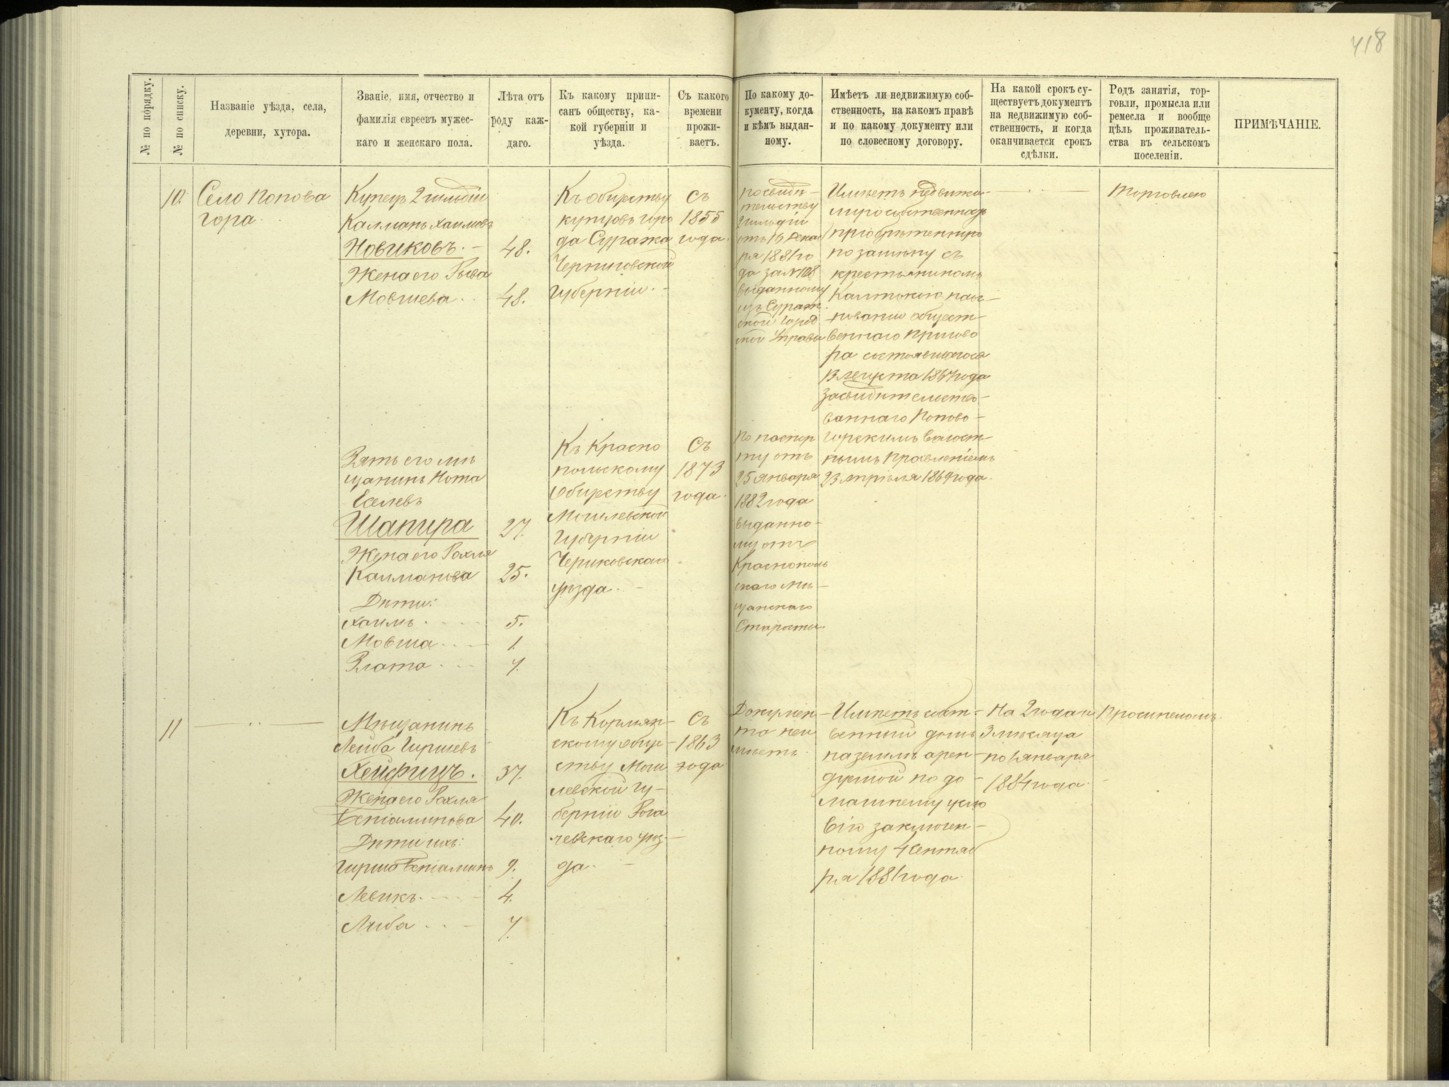 418
№ по порядку.
№ по списку.
Названіе уѣзда, села,
деревни, хутора.
Званіе, имя, отчество и
фамилія евреевъ мужес-
каго и женскаго пола.
Лѣта отъ
роду каж-
даго.
Къ какому припи-
санъ обществу, ка-
кой губерніи и
уѣзда.
Съ какого
времени
прожи-
ваетъ.
По какому до-
кументу, когда
и кѣмъ выдан-
ному.
Имѣетъ ли недвижимую соб-
ственность, на какомъ правѣ
и по какому документу или
по словесному договору.
На какой срокъ су-
ществуетъ документъ
на недвижимую соб-
ственность, и когда
оканчивается срокъ
сдѣлки.
Родъ занятія, тор-
говли, промысла или
ремесла и вообще
цѣль проживатель-
ства въ сельскомъ
поселеніи.
ПРИМѢЧАНІЕ.
10
Село Попова
гора
Купецъ 2 гильдіи
Калманъ Хаимовъ
Новиковъ. - 48.
Жена его Рыва
Мовшева 48.
Къ обществу
купцовъ горо
да Суража
Черниговской
Губерніи. -
Съ
1855
года.
По свидѣ-
тельству
Гильдіи
отъ 15 Декаб
ря 1881 го
да за №
выданному
изъ Сураж
ской Город
ской Управы
Имѣетъ недвижи-
мую собственность
пріобрѣтенную
по замѣну съ
крестьяниномъ
на ос-
нованіи общест-
веннаго Пригово
ра состоявшагося
13 Августа 1867 года
засвидѣтельство-
ваннаго Попово-
горскимъ Волост-
нымъ Правленіемъ
23 Апрѣля 1869 года.
Торговлею
Зять его мѣ
щанинъ Нота
Шапира 27.
Жена его Рохля
Калманова 25.
Дѣти:
Хаимъ 5.
Мовша 1
Злата 7.
Къ Красно
польскому
Обществу
Могилевской
Губерніи
Чериковскаго
уѣзда. -
Съ
1873
года.
По паспор
ту отъ
25 Января
1882 года
выданно-
му отъ
Краснополь
скаго мѣ-
щанскаго
Старосты
11
Мѣщанинъ
Лейба Гиршевъ
Хейфицъ. 37.
Жена его Рохля
Беніаминова 40.
Дѣти ихъ:
Гиршъ Беніаминъ 9.
Левикъ 4.
Либа 7.
Къ Кормян-
скому обще-
ству Моги
левской Гу-
берніи Рога
чевскаго уѣз-
да. -
Съ
1863
года
Докумен-
та не и
мѣетъ.
Имѣетъ собст-
венный домъ
на землѣ арен-
дуемой по до-
машнему усло
вію заключен-
ному 4 Сентяб
ря 1881 года
На 2 года и
3 мѣсяца
по 1 января
1884 года